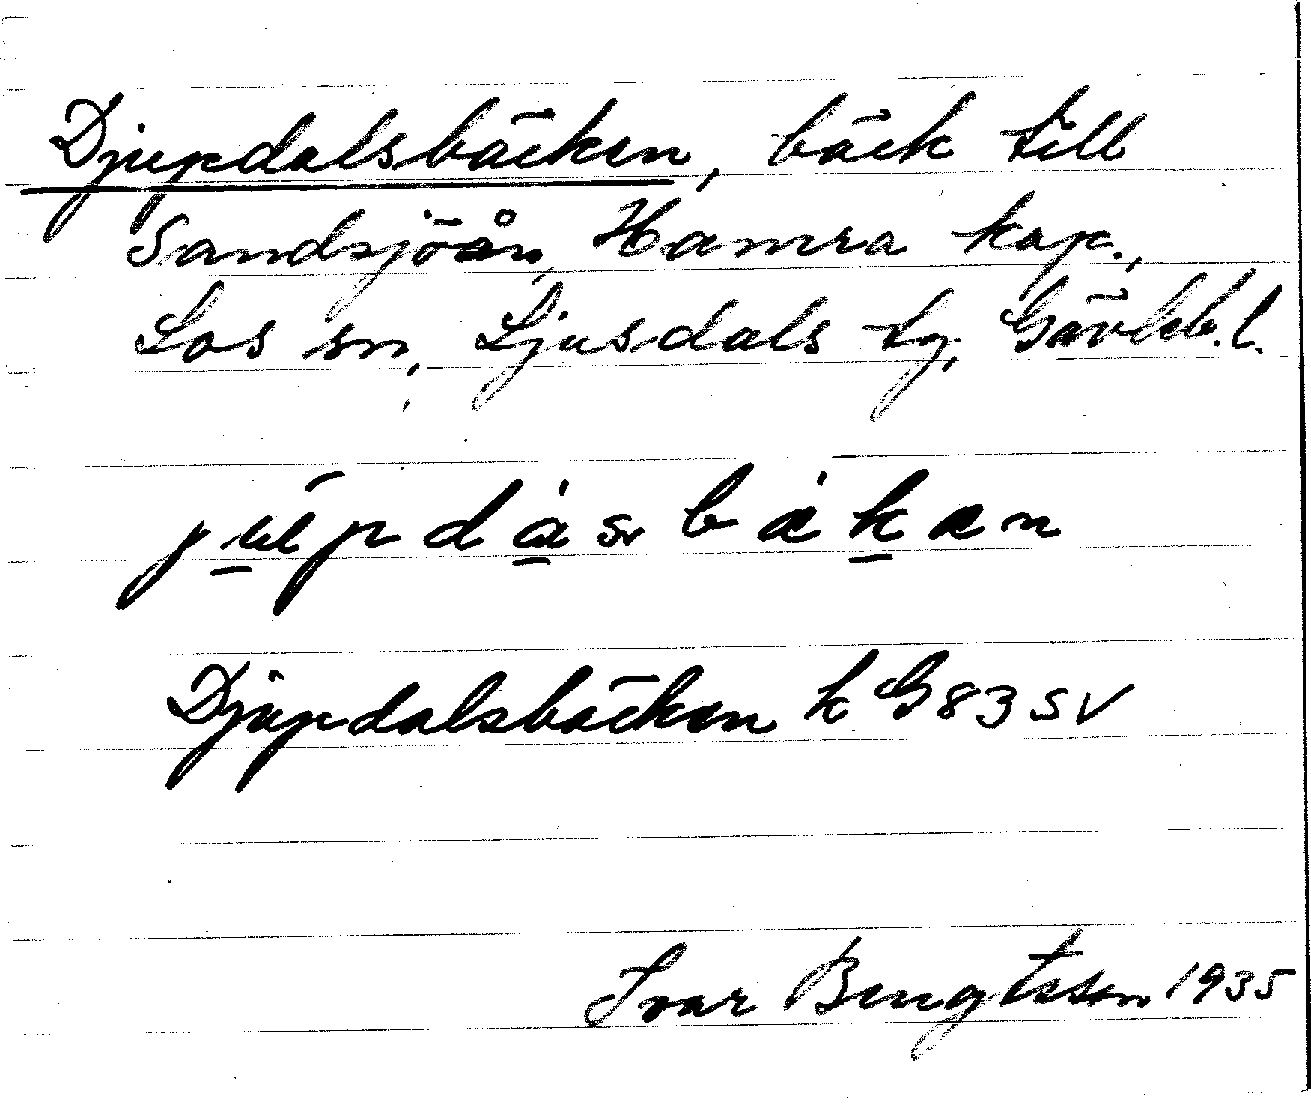 Djupdalsbäcken, bäck till
Sandsjöån, Hamra kap.,
Los sn, Ljusdals tg, Gävleb. l.
Djupdalsbäcken k G83 SV
Ivar Bengtsson 1935